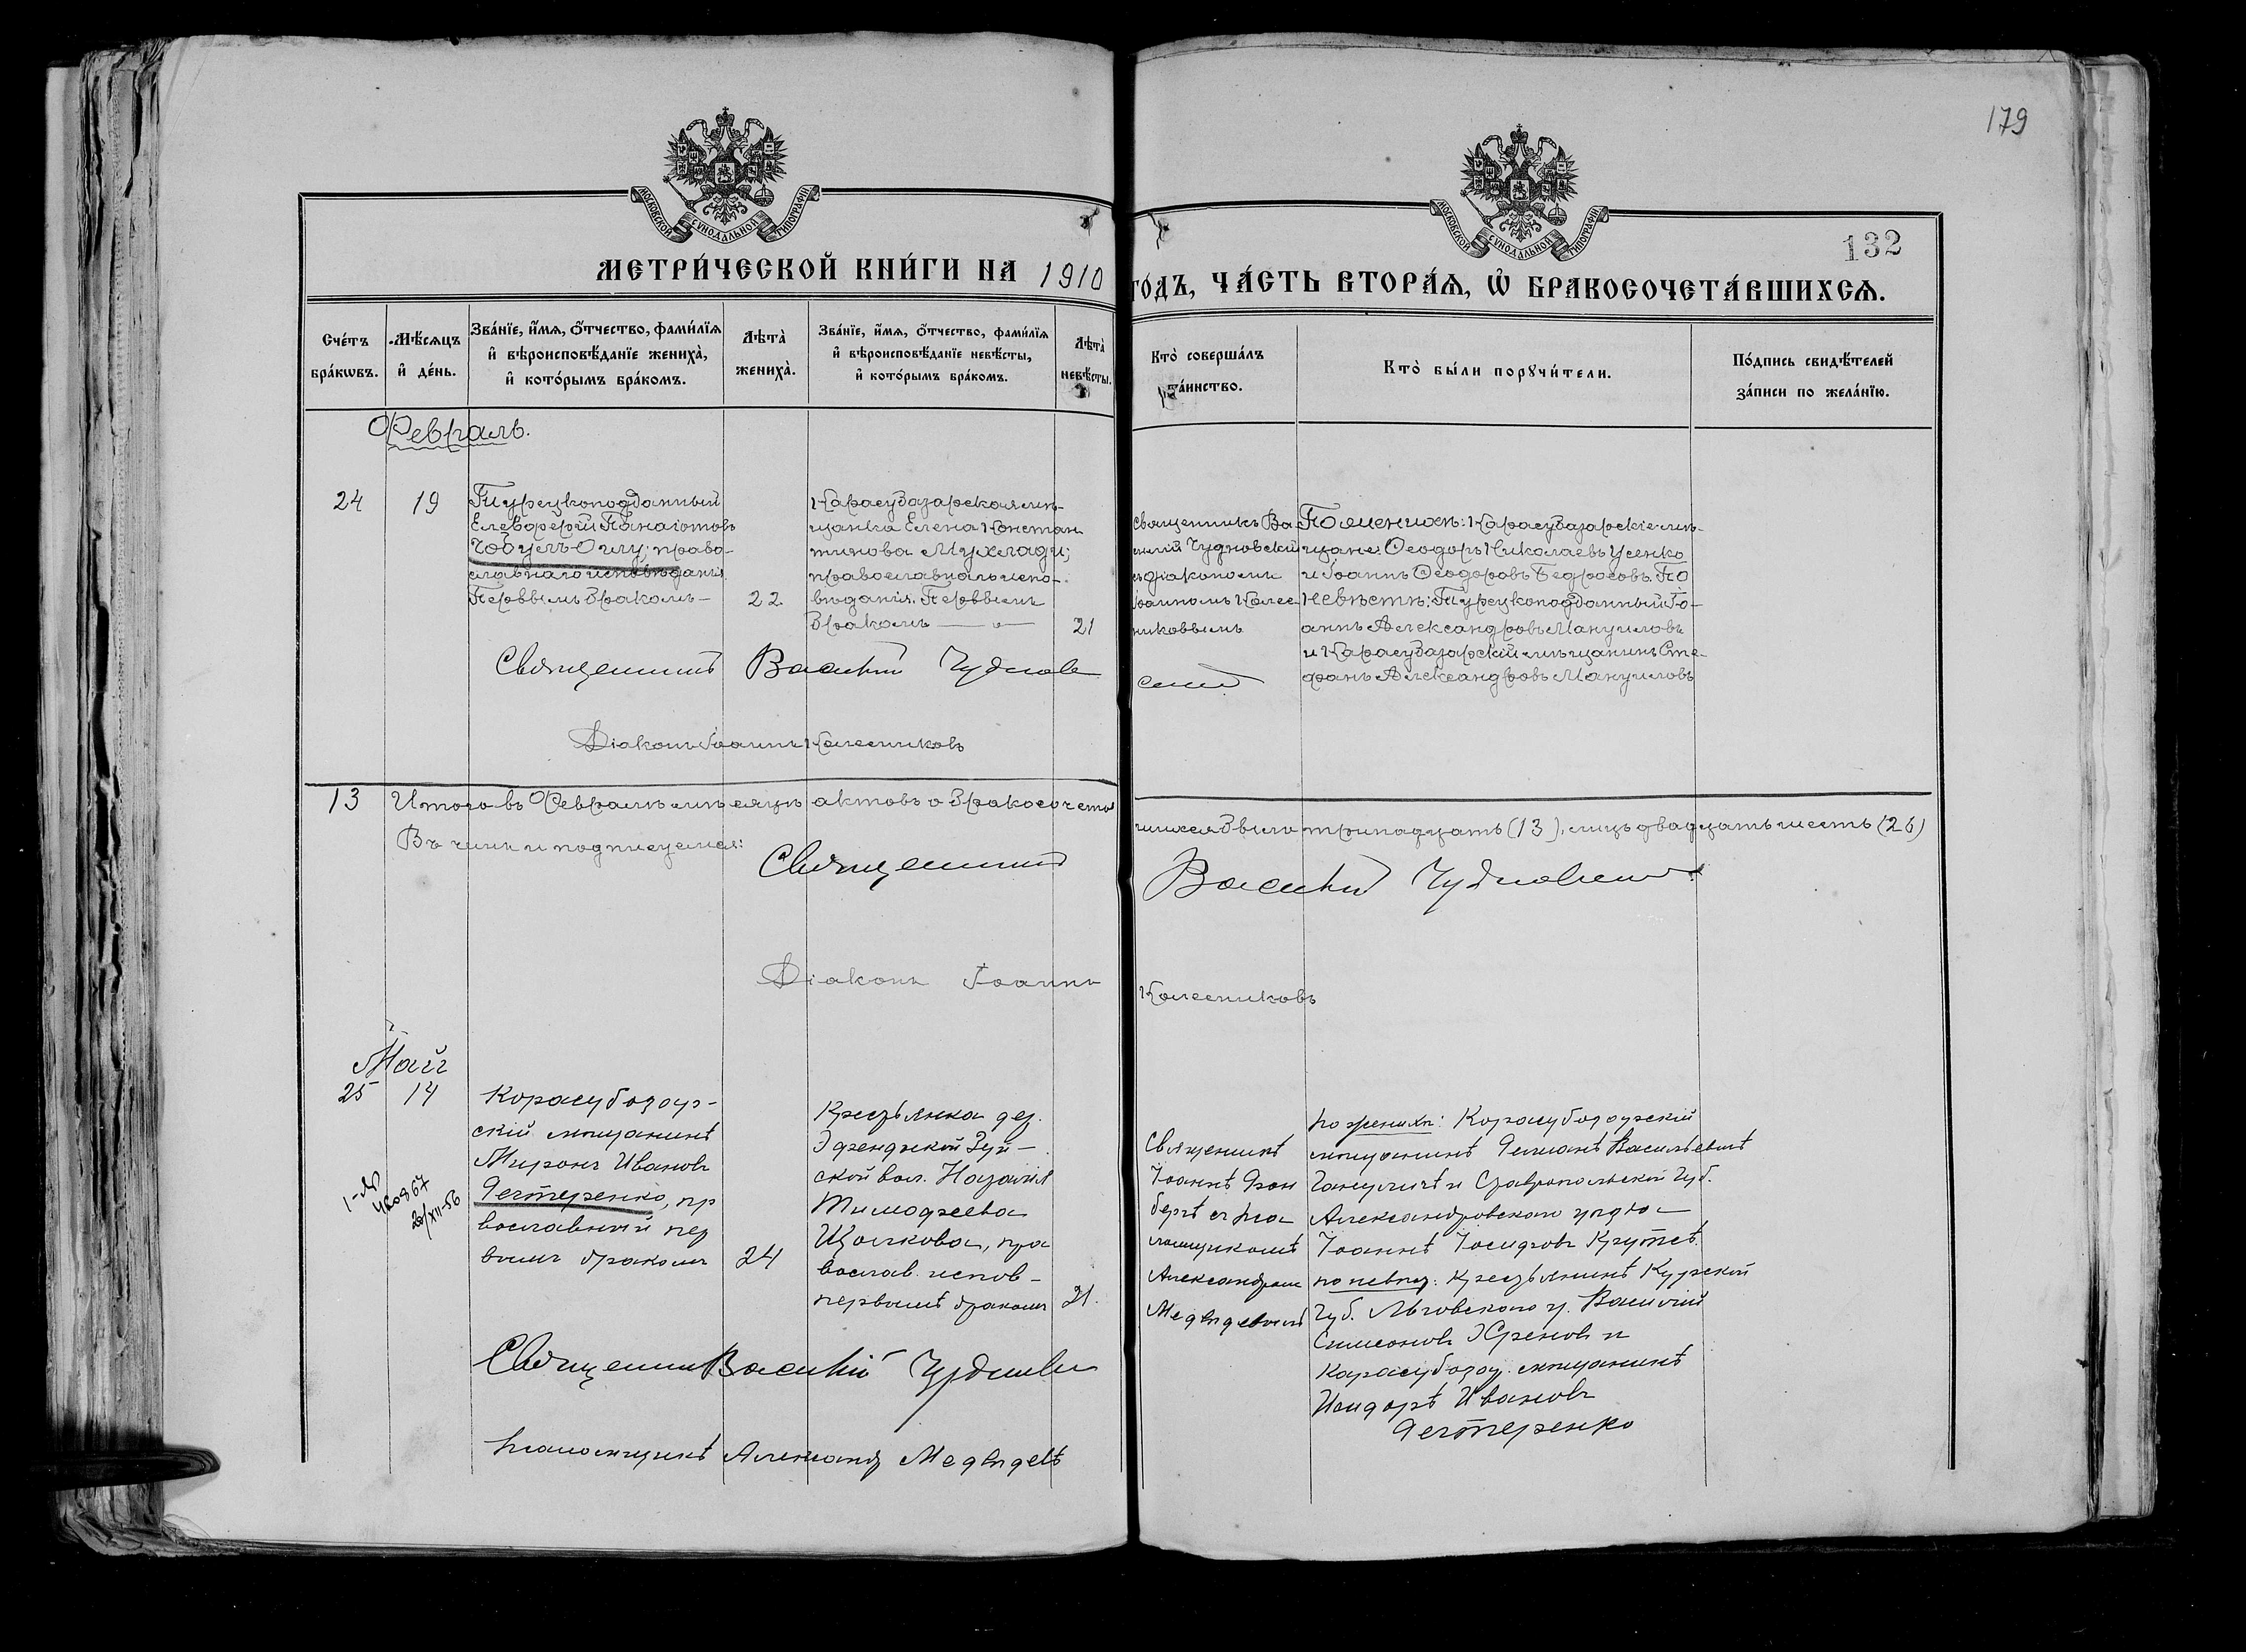 179
132
МОСКОВСКОЙ СѴНОДАЛЬНОЙ ТИПОГРАФІИ
МОСКОВСКОЙ СѴНОДАЛЬНОЙ ТИПОГРАФІИ
МЕТРИ́ЧЕСКОЙ КНИ́ГИ НА 1910 ГО́ДЪ, ЧА́СТЬ ВТОРА́Ѧ, Ѡ БРАКОСОЧЕТА́ВШИХСѦ.
Сче́тъ бра́кѡвъ.
Мѣ́сѧцъ и҆ де́нь.
Зва́нїе, и҆́мѧ, ѻ҆́тчество, фами́лїѧ
и҆ вѣроисповѣ́данїе жениха̀,
и҆ кото́рымъ бра́комъ.
Лѣта̀ жениха̀.
Зва́нїе, и҆́мѧ, ѻ҆́тчество, фами́лїѧ
и҆ вѣроисповѣ́данїе невѣ́сты,
и҆ кото́рымъ бра́комъ.
Лѣта̀ невѣ́сты.
Кто̀ соверша́лъ та́инство.
Кто̀ бы́ли порꙋчи́тели.
По́дпись свидѣ́телей
за́писи по жела́нїю.
Февраль.
24
19
Турецкоподданный
Елевферій Панаіотовъ
Чобулъ-Оглу; право-
славнаго исповѣданія
Первымъ бракомъ —
22
Карасубазарская мѣ-
щанка Елена Констан
тинова Мухлади;
православнаго испо-
вѣданія. Первымъ
бракомъ
21
Священникъ Ва
силій Чудновскій
съ діакономъ
Іоанномъ Колес
никовымъ
По женихѣ: Карасубазарскіе мѣ-
щане: Ѳеодоръ Николаевъ Усенко
и Іоаннъ Ѳеодоровъ Бедросовъ. По
невѣстѣ: Турецкоподданный Іо-
аннъ Александровъ Мануиловъ
и Карасубазарскій мѣщанинъ Сте-
фанъ Александровъ Мануиловъ
Священникъ Василій Чудновскій
Діаконъ Іоаннъ Колесниковъ
13 Итого въ Февралѣ мѣсяцѣ актовъ о бракосочета
шихся было тринадцать (13), лицъ двадцать шесть (26)
Въ чемъ и подписуемся:
Священникъ Василій Чудновскій
Діаконъ Іоаннъ Колесниковъ
Май
25
14
40867
Карасубазар-
скій мѣщанинъ
Миронъ Ивановъ
Дегтеренко, пр
вославный пер
вымъ бракомъ
24
Крестьянка дер.
ской вол. Наталія
Тимофеева
Щолкова, пра
вослав. испов-
первымъ бракомъ
21.
Священникъ
Іоаннъ
бергъ съ пса
ломщикомъ
Александромъ
Медвѣдевымъ
по женихѣ: Карасубазарскій
мѣщанинъ Васильевичъ
и Ставропольской Губ.
Александровскаго уѣзда
Іоаннъ Іосифовъ Крутъ.
по невѣс: крестьянинъ Курской
Губ. Льговскаго у. Василій
Симеоновъ и
Карасубазар. мѣщанинъ
Исидоръ Ивановъ
Дегтеренко
Священник Василій Чудновскій
псаломщикъ Александр Медвѣдевъ